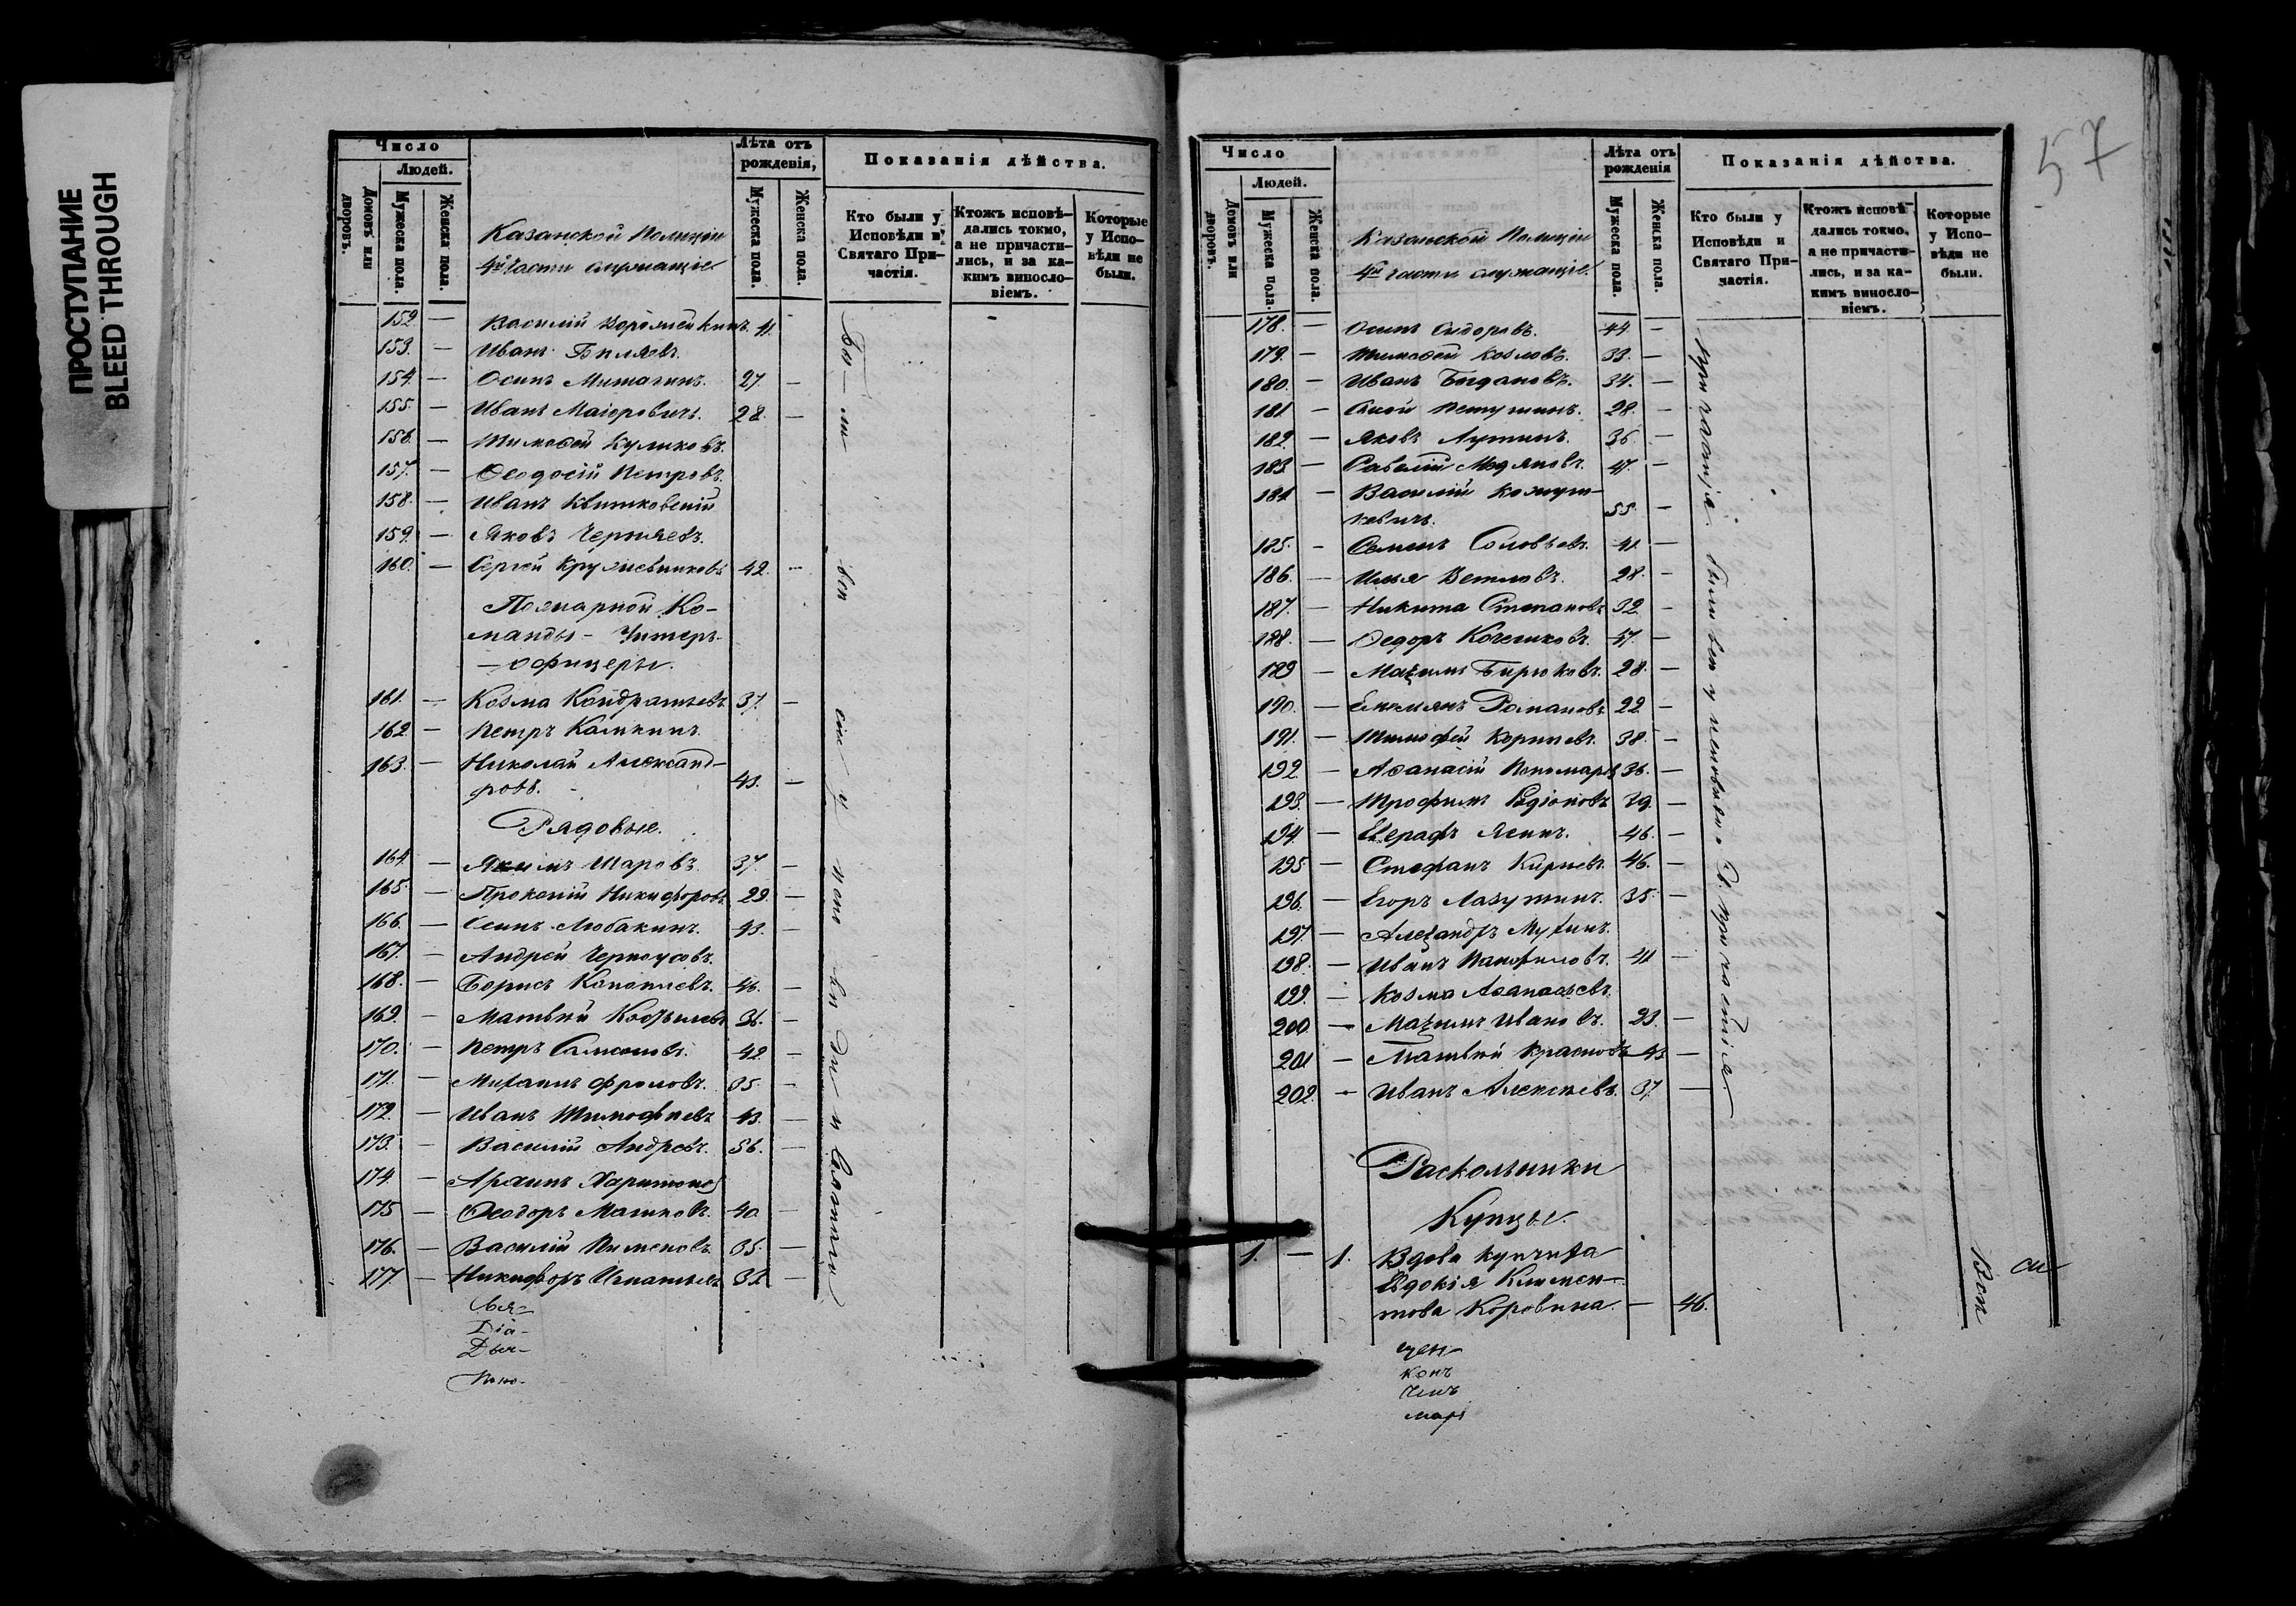 ПРОСТУПАНИЕ
BLEED THROUGH
Число
Людей.
Домовъ или дворовъ.
Мужеска пола.
Женска пола.
Казанской Полиціи
4й части служащіе.
Лѣта отъ рожденія,
Мужеска пола.
Женска пола.
Показанія дѣйства.
Кто были у Исповѣди и Святаго Причастія.
Ктожъ исповѣдались токмо, а не причастились, и за какимъ винословіемъ.
Которые у Исповѣди не были.
152 — Василій 41.
153. — Иванъ Бѣляевъ.
154. — Осипъ 27. —
155. — Иванъ Маіоровичъ. 28. —
156. — Тимоѳей Куликовъ.
157. — Ѳеодосій Петровъ.
158. — Иванъ Квитковскій
159. — Яковъ Черняевъ.
160. — Сергѣй Кружевниковъ 42. —
Пожарной Ко-
манды - Унтеръ-
- офицеры.
161. — Козма Кондратьевъ 37. —
162. — Петръ Калининъ.
163. — Николай Александ-
ровъ. 43. —
Рядовые.
164. — Якимъ Шаровъ 37. —
165. — Прокопій Никифоровъ 29. —
166. — Осипъ Любакинъ. 43. —
167. — Андрей Черноусовъ.
168. — Борисъ Коноплевъ. 46. —
169. — Матвѣй 36. —
170. — Петръ Самсоновъ. 42. —
171. — Михаилъ Фроловъ. 35. —
172. — Иванъ Тимофѣевъ 43. —
173. — Василій Андреевъ. 56. —
174. — Архипъ Харитоновъ
175 — Ѳеодоръ Машковъ. 40. —
176. — Василій Пименовъ 35. —
177. — Никифоръ Игнатьевъ 32. —
Свя-
Діа-
Дья-
Поно-
Бы — ли всѣ сіи у испо вѣ ди и Святаго
57
Число
Людей.
Домовъ или дворовъ.
Мужеска пола.
Женска пола.
Казанской Полиціи
4й части служащіе.
Лѣта отъ рожденія
Мужеска пола.
Женска пола.
Показанія дѣйства.
Кто были у Исповѣди и Святаго Причастія.
Ктожъ исповѣдались токмо, а не причастились, и за какимъ винословіемъ.
Которые у Исповѣди не были.
178. — Осипъ Сидоровъ. 44. —
179. — Тимоѳей Козловъ. 33. —
180. — Иванъ Богдановъ. 34. —
181 — Петушинъ. 28. —
182. — Яковъ Лутинъ. 36 —
183. — Савелій 47. —
184 — Василій
ковичъ. 55. —
185. — Семенъ Соловьевъ. 41. —
186. — Илья Ветловъ. 28. —
187. — Никита Степановъ 32 —
188. — Ѳедоръ 47. —
189 — Маѯимъ Бирюковъ. 28. —
190. — Емельянъ Романовъ 22 —
191. — Тимофей Корнѣевъ. 38. —
192 — Аѳанасій Пономаревъ 36. —
193. — Трофимъ Родіоновъ 39. —
194. — Ясинъ. 46. —
195. — Стефанъ Кирѣевъ. 46. —
196. — Егоръ Лазутинъ. 35. —
197. — Алеѯандръ Мухинъ.
198. — Иванъ Панфиловъ. 41 —
199. — Козма Аѳанасьевъ.
200. — Маѯимъ Ивановъ. 23. —
201 — Матвѣй Красновъ 43 —
202. — Иванъ Алексѣевъ. 37. —
Причастія. были всѣ у исповѣди и причастія
Раскольники
Купцы.
1. — 1. Вдова купчиха
Евдокія Климен-
това Коровина. — 46.
Раск
щен-
конъ
чекъ
марь